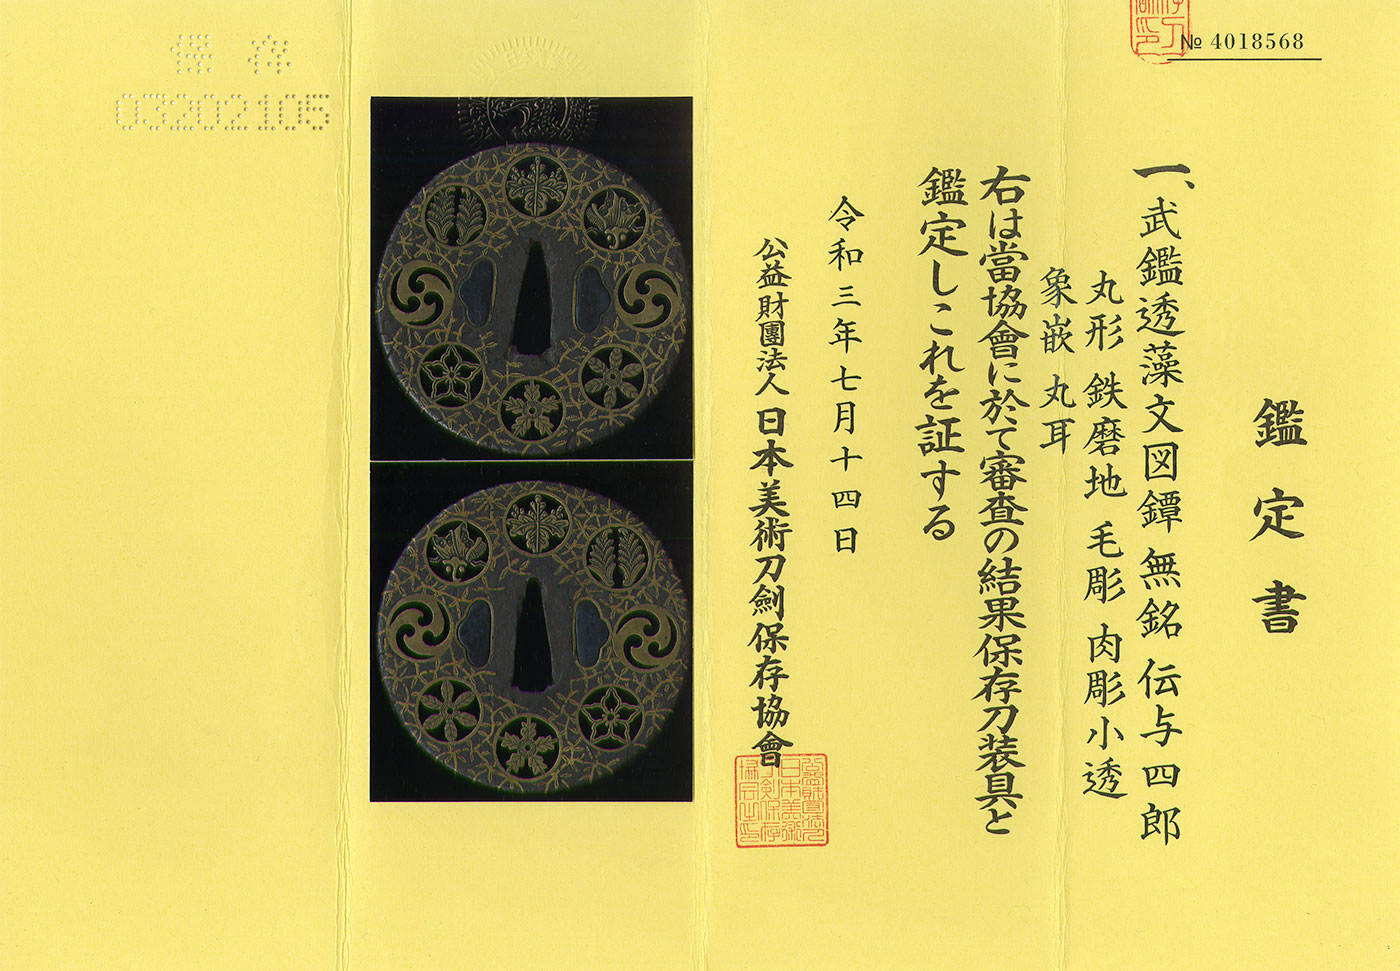 № 4018568
鑑定書
一、武鑑透藻文図鐔 無銘 伝与四郎
丸形 鉄磨地 毛彫 肉彫小透
象嵌 丸耳
右は當協會に於て審査の結果保存刀装具と
鑑定しこれを証する
令和三年七月十四日
公益財團法人 日本美術刀劍保存協會
保存
03202105